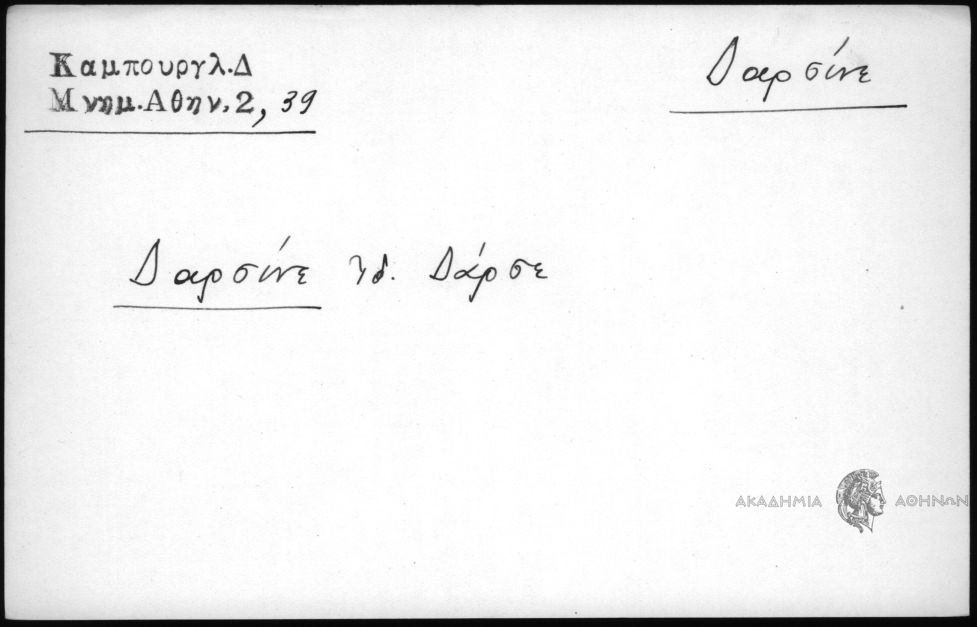 Καμπουργλ.Δ
Μνημ.Αθην.2, 39
Δαρσίνε
Δαρσίνε ἰδ. Δάρσε
ΑΚΑΔΗΜΙΑ ΑΘΗΝΩΝ